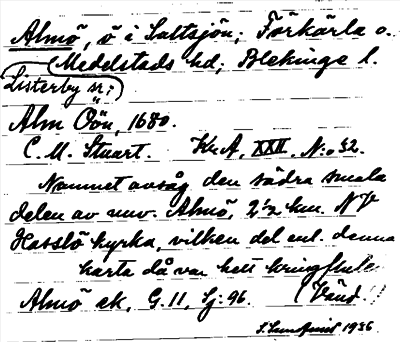 Almö, ö i Saltsjön; Förkärla o.
Medelstads hd; Blekinge l.
Listerby sr;
Alm Öön, 1680.
C. M. Stuart. Kr. A, XXII, N:o 32.
Namnet avsåg den södra smala
delen av nuv. Almö, 2½ km. NV
Hasslö kyrka, vilken del enl. denna
karta då var helt kringfluten.
Almö ek, G. 11, Sj: 96. (Vänd!)
1936